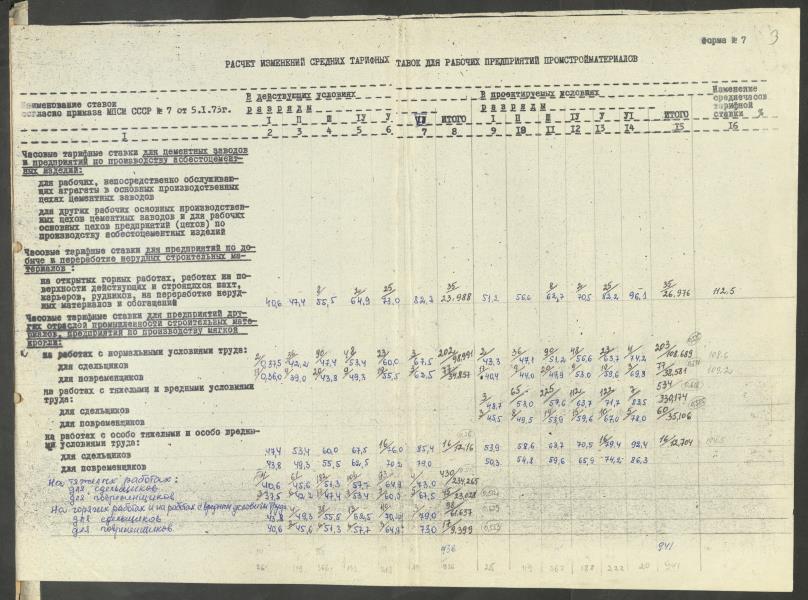 Форма № 7
3
РАСЧЕТ ИЗМЕНЕНИЙ СРЕДНИХ ТАРИФНЫХ ТАВОК ДЛЯ РАБОЧИХ ПРЕДПРИЯТИЙ ПРОМСТРОЙМАТЕРИАЛОВ
Наименование ставок
согласно приказа МПСМ СССР № 7 от 5.I.73г.
В действующих условиях
разряды
В проектируемых условиях
разряды
Изменение
среднечасов
тарифной
ставки %
I П Ш IУ У VI ИТОГО I П Ш IУ У УI ИТОГО
I 2 3 4 5 6 7 8 9 10 11 12 13 14 15 16
Часовые тарифные ставки для цементных заводов
и предприятий по производству асбестоцемент-
ных изделий:
для рабочих, непосредственно обслуживаю-
щих агрегаты в основных производственных
цехах цементных заводов
для других рабочих основных производствен-
ных цехов цементных заводов и для рабочих
основных цехов предприятий (цехов) по
производству асбестоцементных изделий
Часовые тарифные ставки для предприятий по до-
быче и переработке нерудных строительных ма-
териалов :
на открытых горных работах, работах на по-
верхности действующих и строящихся шахт,
карьеров, рудников, на переработке неруд-
ных материалов и обогащении 40,6 47,4 55,5 64,9 73,0 82,3 35/23.988 51,2 62,7 70,5 82,2 96,3 35/26,976 112,5
Часовые тарифные ставки для предприятий дру-
гих отраслей промышленности строительных мате-
риалов, предприятий по производству мягкой
кровли:
на работах с нормальными условиями труда:
для сдельщиков 42,2 47,4 53,4 60,0 67,5 43,3 47,1 51,2 56,6 63,7 74,2 203/108.689 108.6
для повременщиков 39,0 43,8 49,3 55,5 62,5 40,4 44,0 59,6 69,3 109,2
на работах с тяжелыми и вредными условиями
труда:
для сдельщиков 48,7 53,0 57,6 63,7 71,7 83,5 534
для повременщиков 49,5 53,9 59,6 67,0 78,0 60/35,106
на работах с особо тяжелыми и особо вредны-
ми условиями труда:
для сдельщиков 47,4 53,4 60,0 67,5 76,0 85,4 16/12,16 53,9 58,6 63,7 70,5 79,4 92,4 16/12,704 104,5
для повременщиков 43,8 49,3 55,5 62,5 70,2 79,0 50,3 54,8 59,6 65,9 74,2 86,3
На тяжелых работах:
для сдельщиков 40,6 45,6 51,3 57,7 64,9 73,0 430/234,265
для повременщиков 37,5 42,2 47,4 53,4 60,0 67,5
На горячих работах и на работах с вредном условием труда
для сдельщиков 43,8 49,3 55,5 62,5 70,2 79,0 98/61.637
для повременщиков 40,6 45,6 51,3 57,7 64,9 73,0 17/9,399
936 941
26 119 936 25 119 367 188 222 20 941